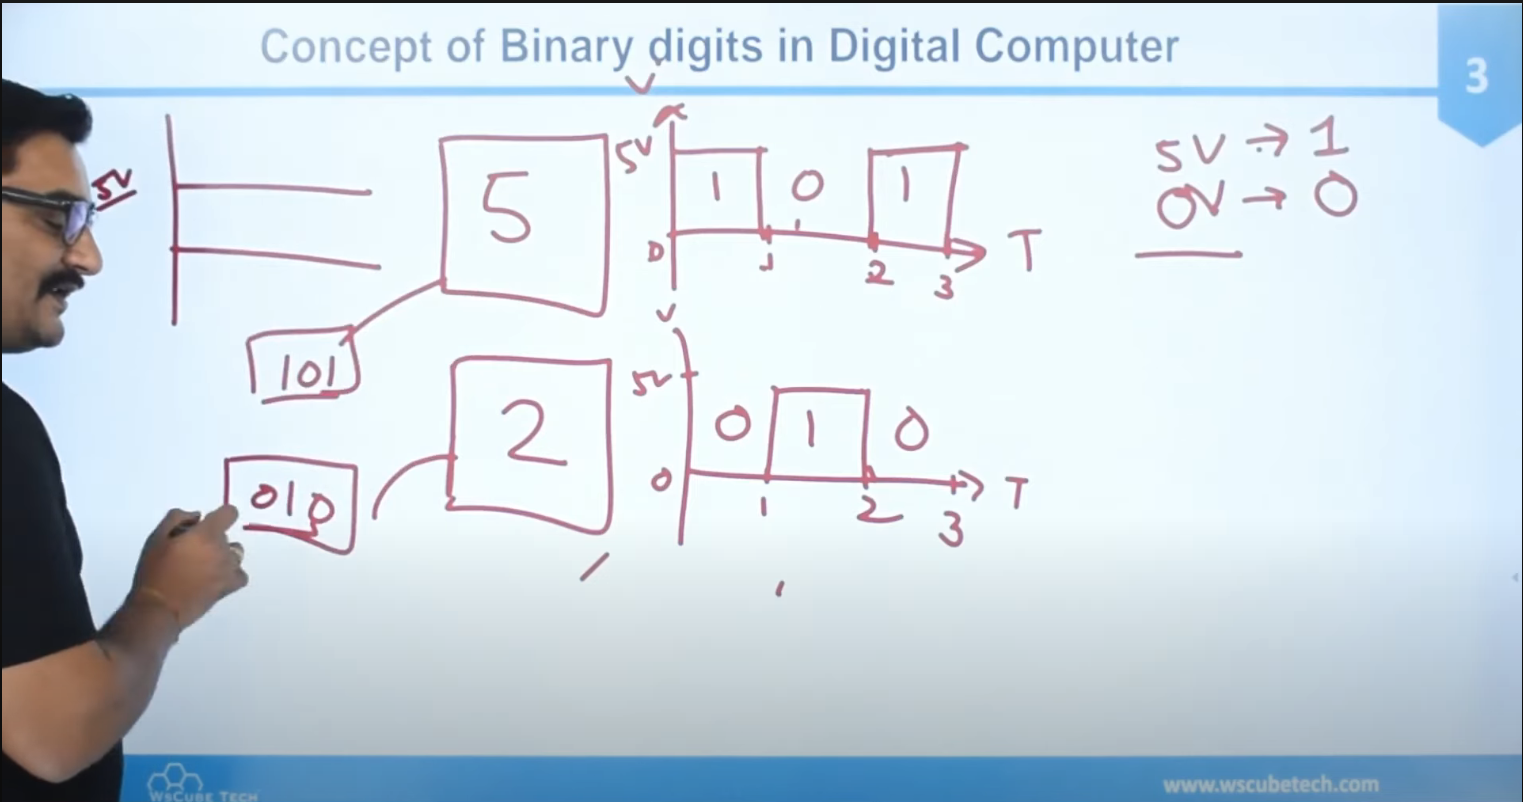 Concept of Binary digits in Digital Computer
3
V
5V
5
5V
1
0
1
5V → 1
0V → 0
0
1
2
3
T
101
V
2
5V
0
1
0
010
0
1
2
3
T
WsCube Tech
www.wscubetech.com